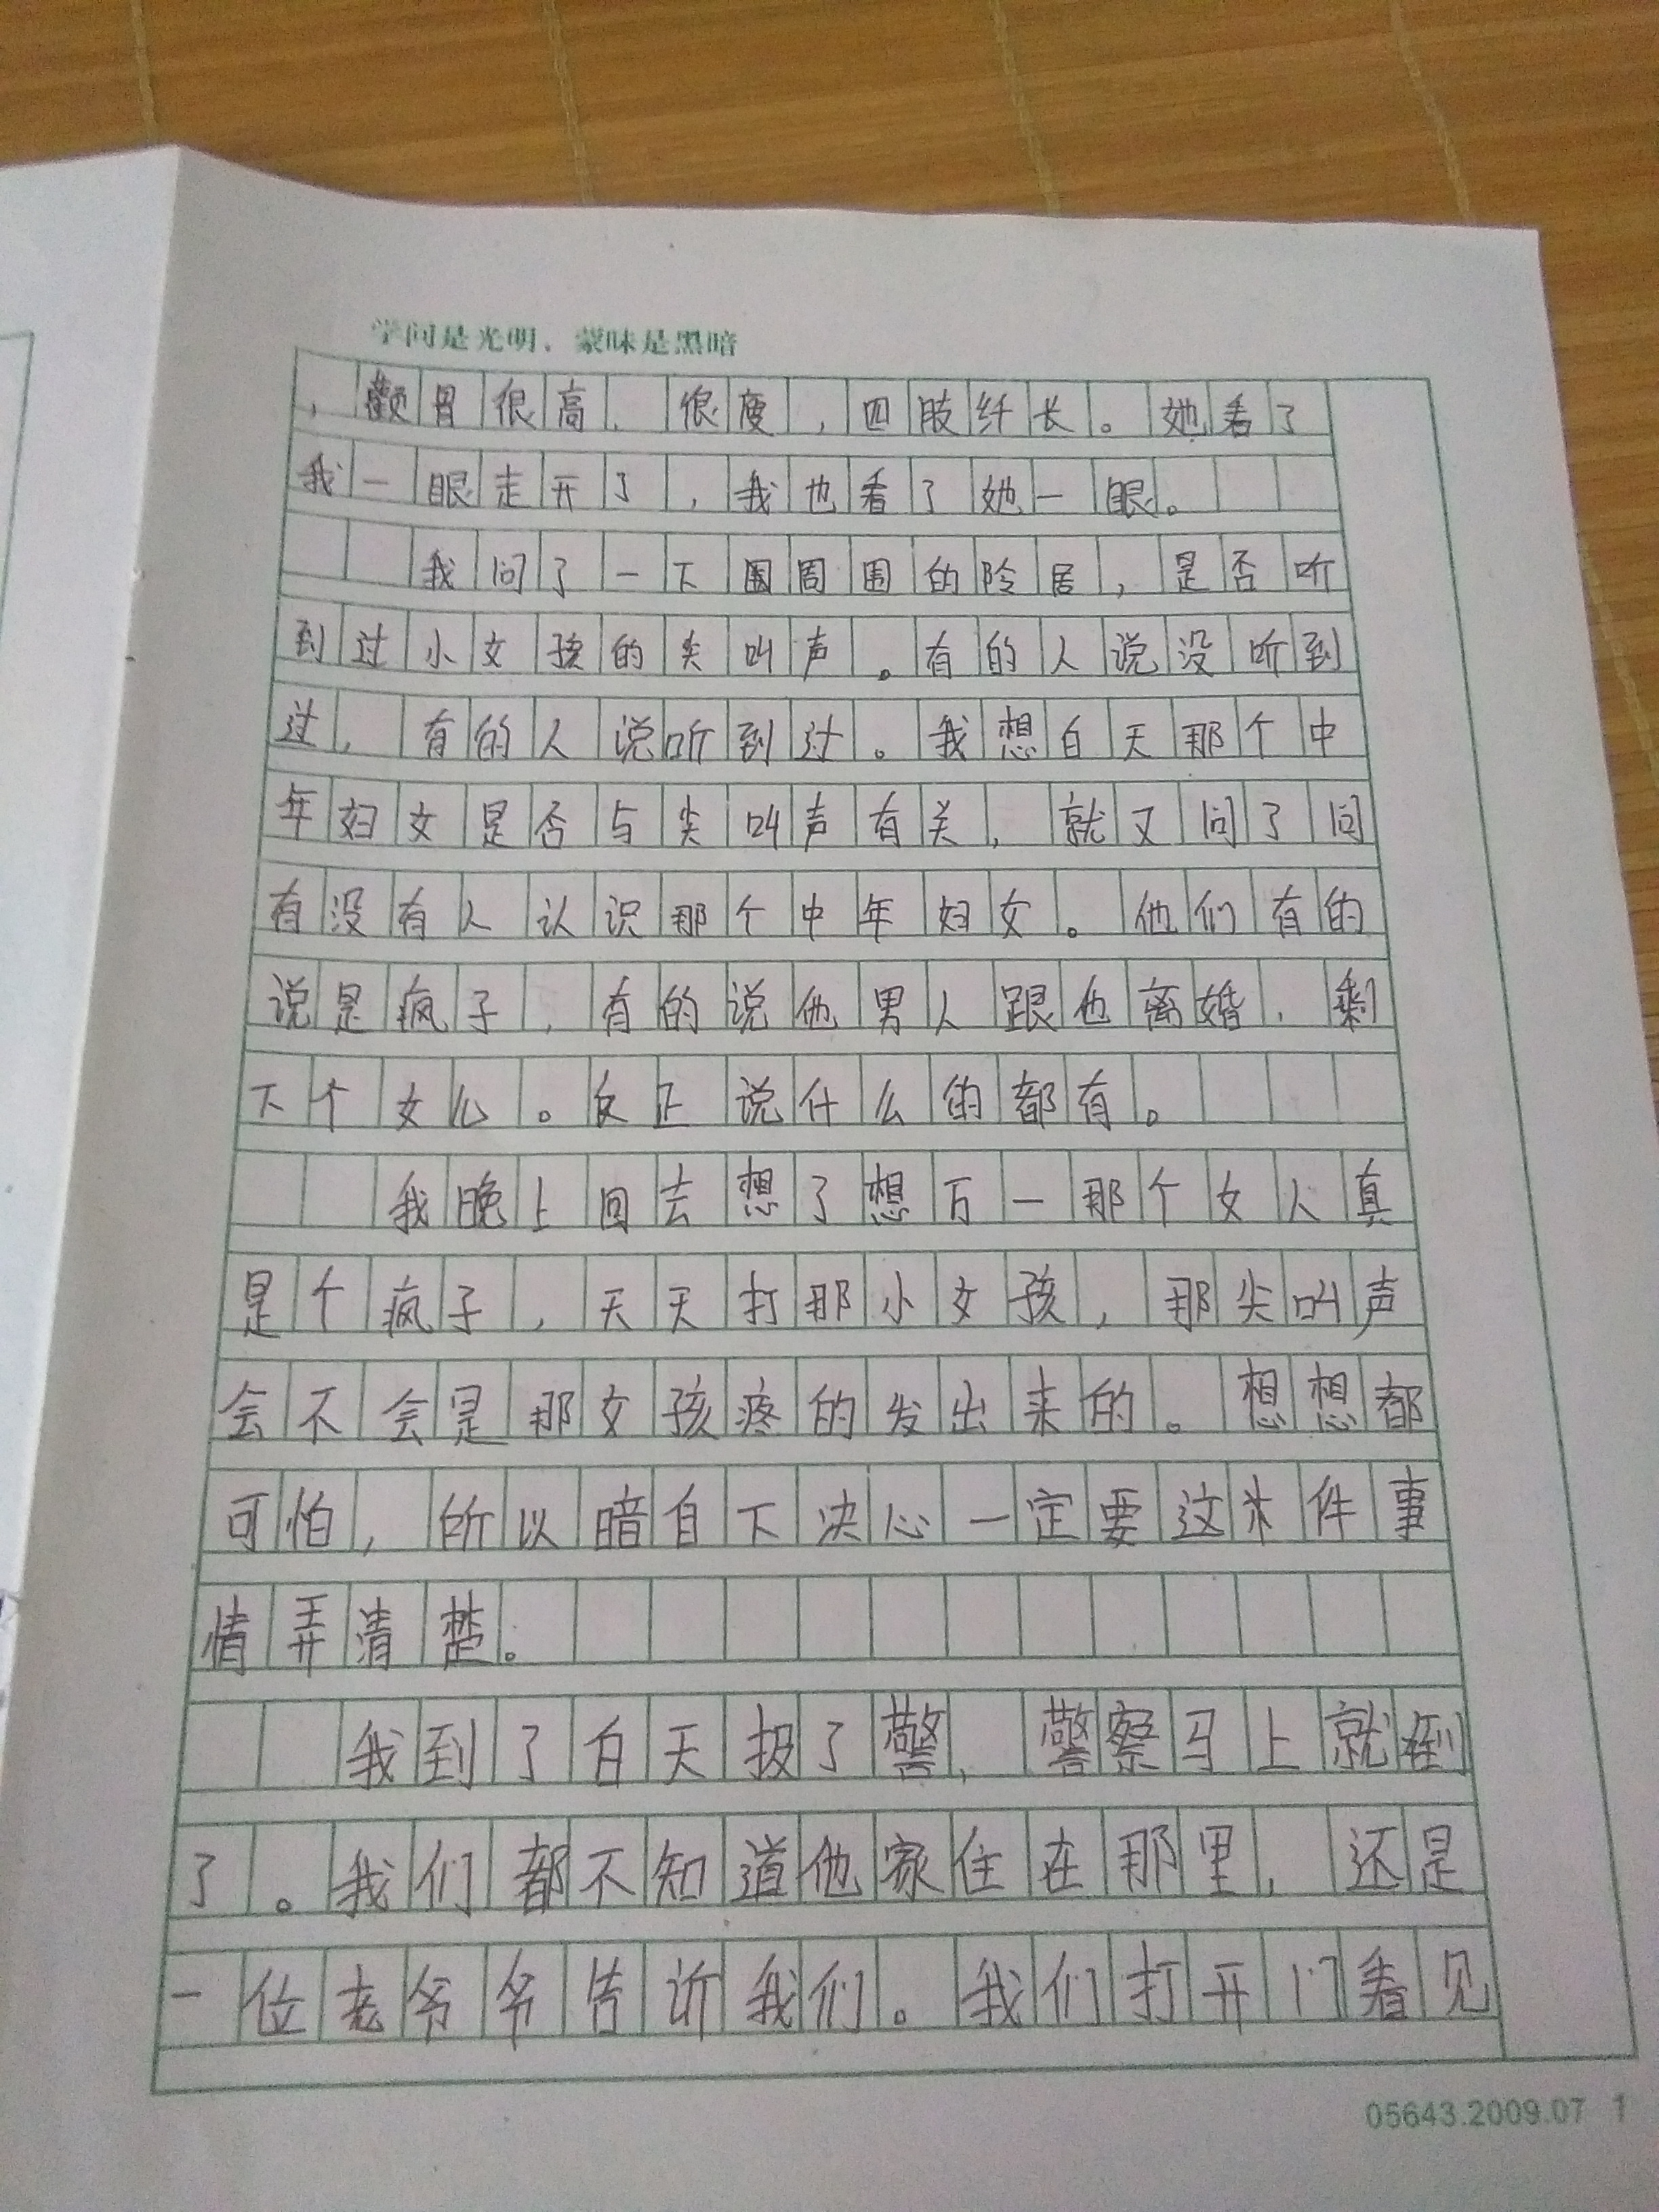 学问是光明，蒙昧是黑暗
，颧骨很高，很瘦，四肢纤长。她看了
我一眼走开了，我也看了她一眼。
我问了一下周围的邻居，是否听
到过小女孩的尖叫声。有的人说没听到
过，有的人说听到过。我想白天那个中
年妇女是否与尖叫声有关，就又问了问
有没有人认识那个中年妇女。他们有的
说是疯子，有的说他男人跟也离婚，剩
下个女儿。反正说什么的都有。
我晚上回去想了想万一那个女人真
是个疯子，天天打那小女孩，那尖叫声
会不会是那女孩疼的发出来的。想想都
可怕，所以暗自下决心一定要这件事
情弄清楚。
我到了白天报了警，警察马上就到
了。我们都不知道他家住在那里，还是
一位老爷爷告诉我们。我们打开门看见
05643.2009.07 1